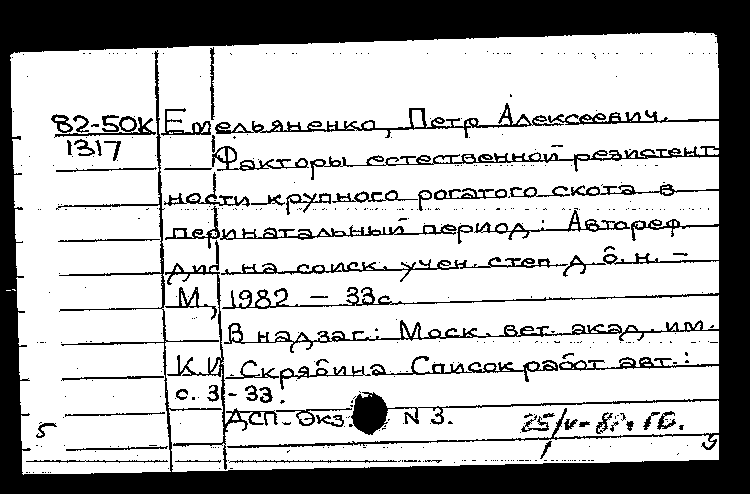 82-50К Емельяненко, Петр Алексеевич.
1317 Факторы естественной резистент-
ности крупного рогатого скота в
перинатальный период: Автореф.
дис. на соиск. учен. степ д. б. н. –
М., 1982. – 33с.
В надзаг.: Моск. вет. акад. им.
К.И. Скрябина. Список работ авт.:
с. 31-33.
ДСП-Экз. N 3.
5